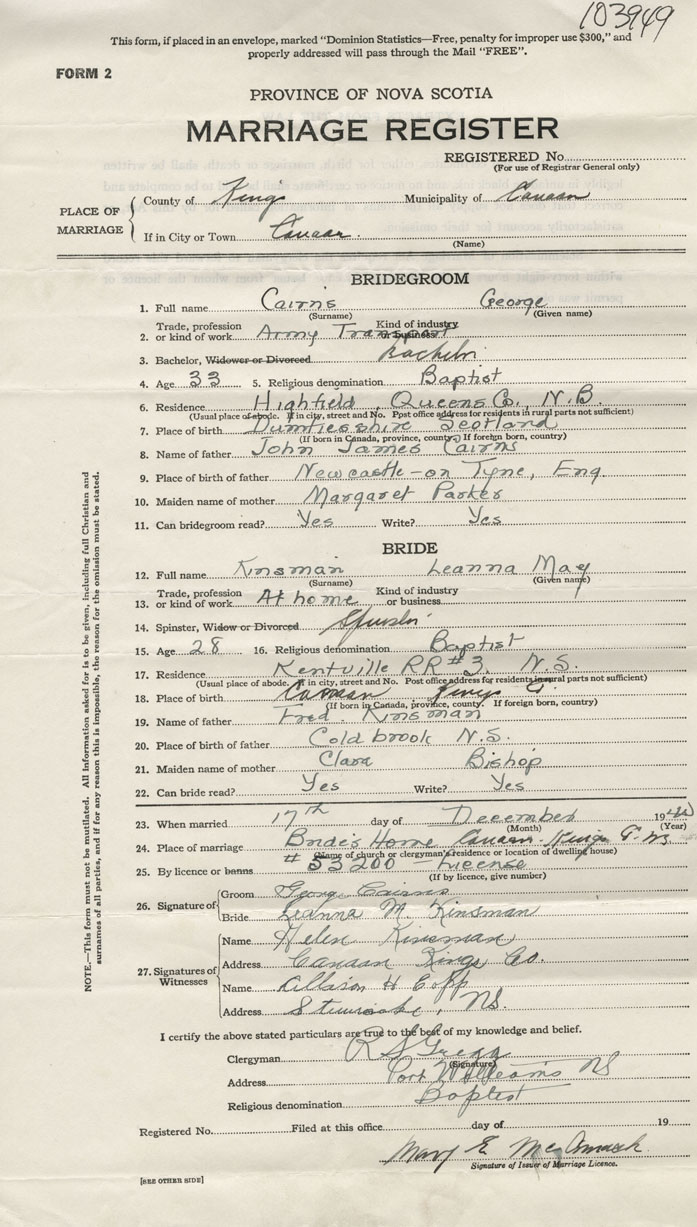 103949
This form, if placed in an envelope, marked “Dominion Statistics—Free, penalty for improper use $300,” and
properly addressed will pass through the Mail “FREE”.
FORM 2
PROVINCE OF NOVA SCOTIA
MARRIAGE REGISTER
REGISTERED No.
(For use of Registrar General only)
PLACE OF MARRIAGE
County of Kings Municipality of Canaan
If in City or Town Canaan.
(Name)
BRIDEGROOM
1. Full name Cairns George
(Surname) (Given name)
2. Trade, profession or kind of work Army Transport Kind of industry or business
3. Bachelor, Widower or Divorced Bachelor
4. Age 33 5. Religious denomination Baptist
6. Residence Highfield, Queens Co., N.B.
(Usual place of abode. If in city, street and No. Post office address for residents in rural parts not sufficient)
7. Place of birth Dumfiesshire Scotland
(If born in Canada, province, county. If foreign born, country)
8. Name of father John James Cairns
9. Place of birth of father Newcastle-on Tyne, Eng.
10. Maiden name of mother Margaret Parker
11. Can bridegroom read? Yes Write? Yes
BRIDE
12. Full name Kinsman Leanna May
(Surname) (Given name)
13. Trade, profession or kind of work At home Kind of industry or business
14. Spinster, Widow or Divorced Spinster
15. Age 28 16. Religious denomination Baptist
17. Residence Kentville RR#3 N.S.
(Usual place of abode. If in city, street and No. Post office address for residents in rural parts not sufficient)
18. Place of birth Canaan Kings Co.
(If born in Canada, province, county. If foreign born, country)
19. Name of father Fred. Kinsman
20. Place of birth of father Coldbrook N.S.
21. Maiden name of mother Clara Bishop
22. Can bride read? Yes Write? Yes
23. When married 17th day of December 19
(Month) (Year)
24. Place of marriage Bride's Home Canaan. Kings Co. N.S.
(Name of church or clergyman's residence or location of dwelling house)
25. By licence or banns # 53200 - License
(If by licence, give number)
26. Signature of
Groom George Cairns
Bride Leanna M. Kinsman
27. Signatures of Witnesses
Name Helen Kinsman
Address Canaan Kings Co.
Name Allison H Copp
Address NS.
I certify the above stated particulars are true to the best of my knowledge and belief.
Clergyman R S Gregg
(Signature)
Address Port Williams NS
Religious denomination Baptist
Registered No. Filed at this office day of 19
Mary E.
Signature of Issuer of Marriage Licence.
[SEE OTHER SIDE]
NOTE.—This form must not be mutilated. All Information asked for is to be given, including full Christian and
surnames of all parties, and if for any reason this is impossible, the reason for the omission must be stated.